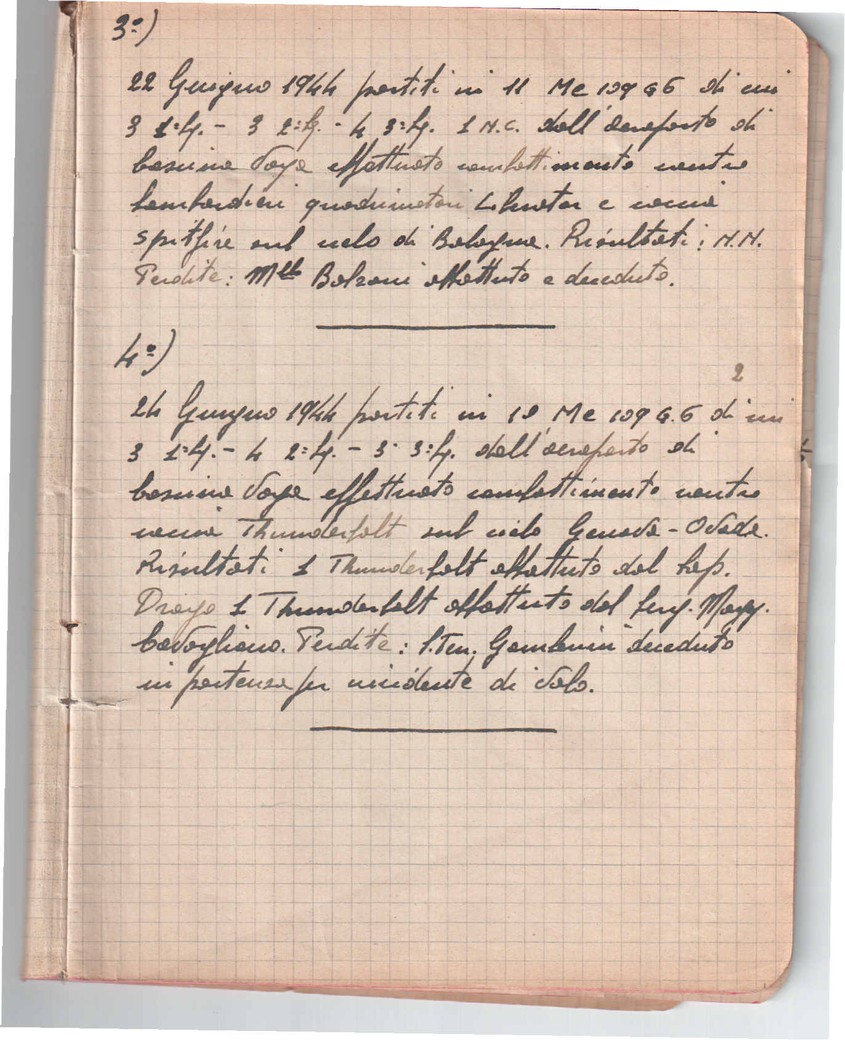 3º)
22 Giugno 1944 partiti in 11 Me 109 G6 di cui
3 1ª Sq. - 3 2ª Sq. - 4 3ª Sq. 1 N.C. dall'aeroporto di
Cascina Vaga effettuato combattimento contro
bombardieri quadrimotori Liberator e caccia
Spitfire sul cielo di Bologna. Risultati: N.N.
Perdite: M.llo Bolzoni abbattuto e deceduto.
4º)
2
24 Giugno 1944 partiti in 10 Me 109 G.6 di cui
3 1ª Sq. - 4 2ª Sq. - 3 3ª Sq. dall'aeroporto di
Cascina Vaga effettuato combattimento contro
caccia Thunderbolt sul cielo Genova - Ovada.
Risultati 1 Thunderbolt abbattuto dal Cap.
Drago 1 Thunderbolt abbattuto dal Serg. Magg.
Cavagliano. Perdite: S.Ten. Gamberini deceduto
in partenza per incidente di volo.